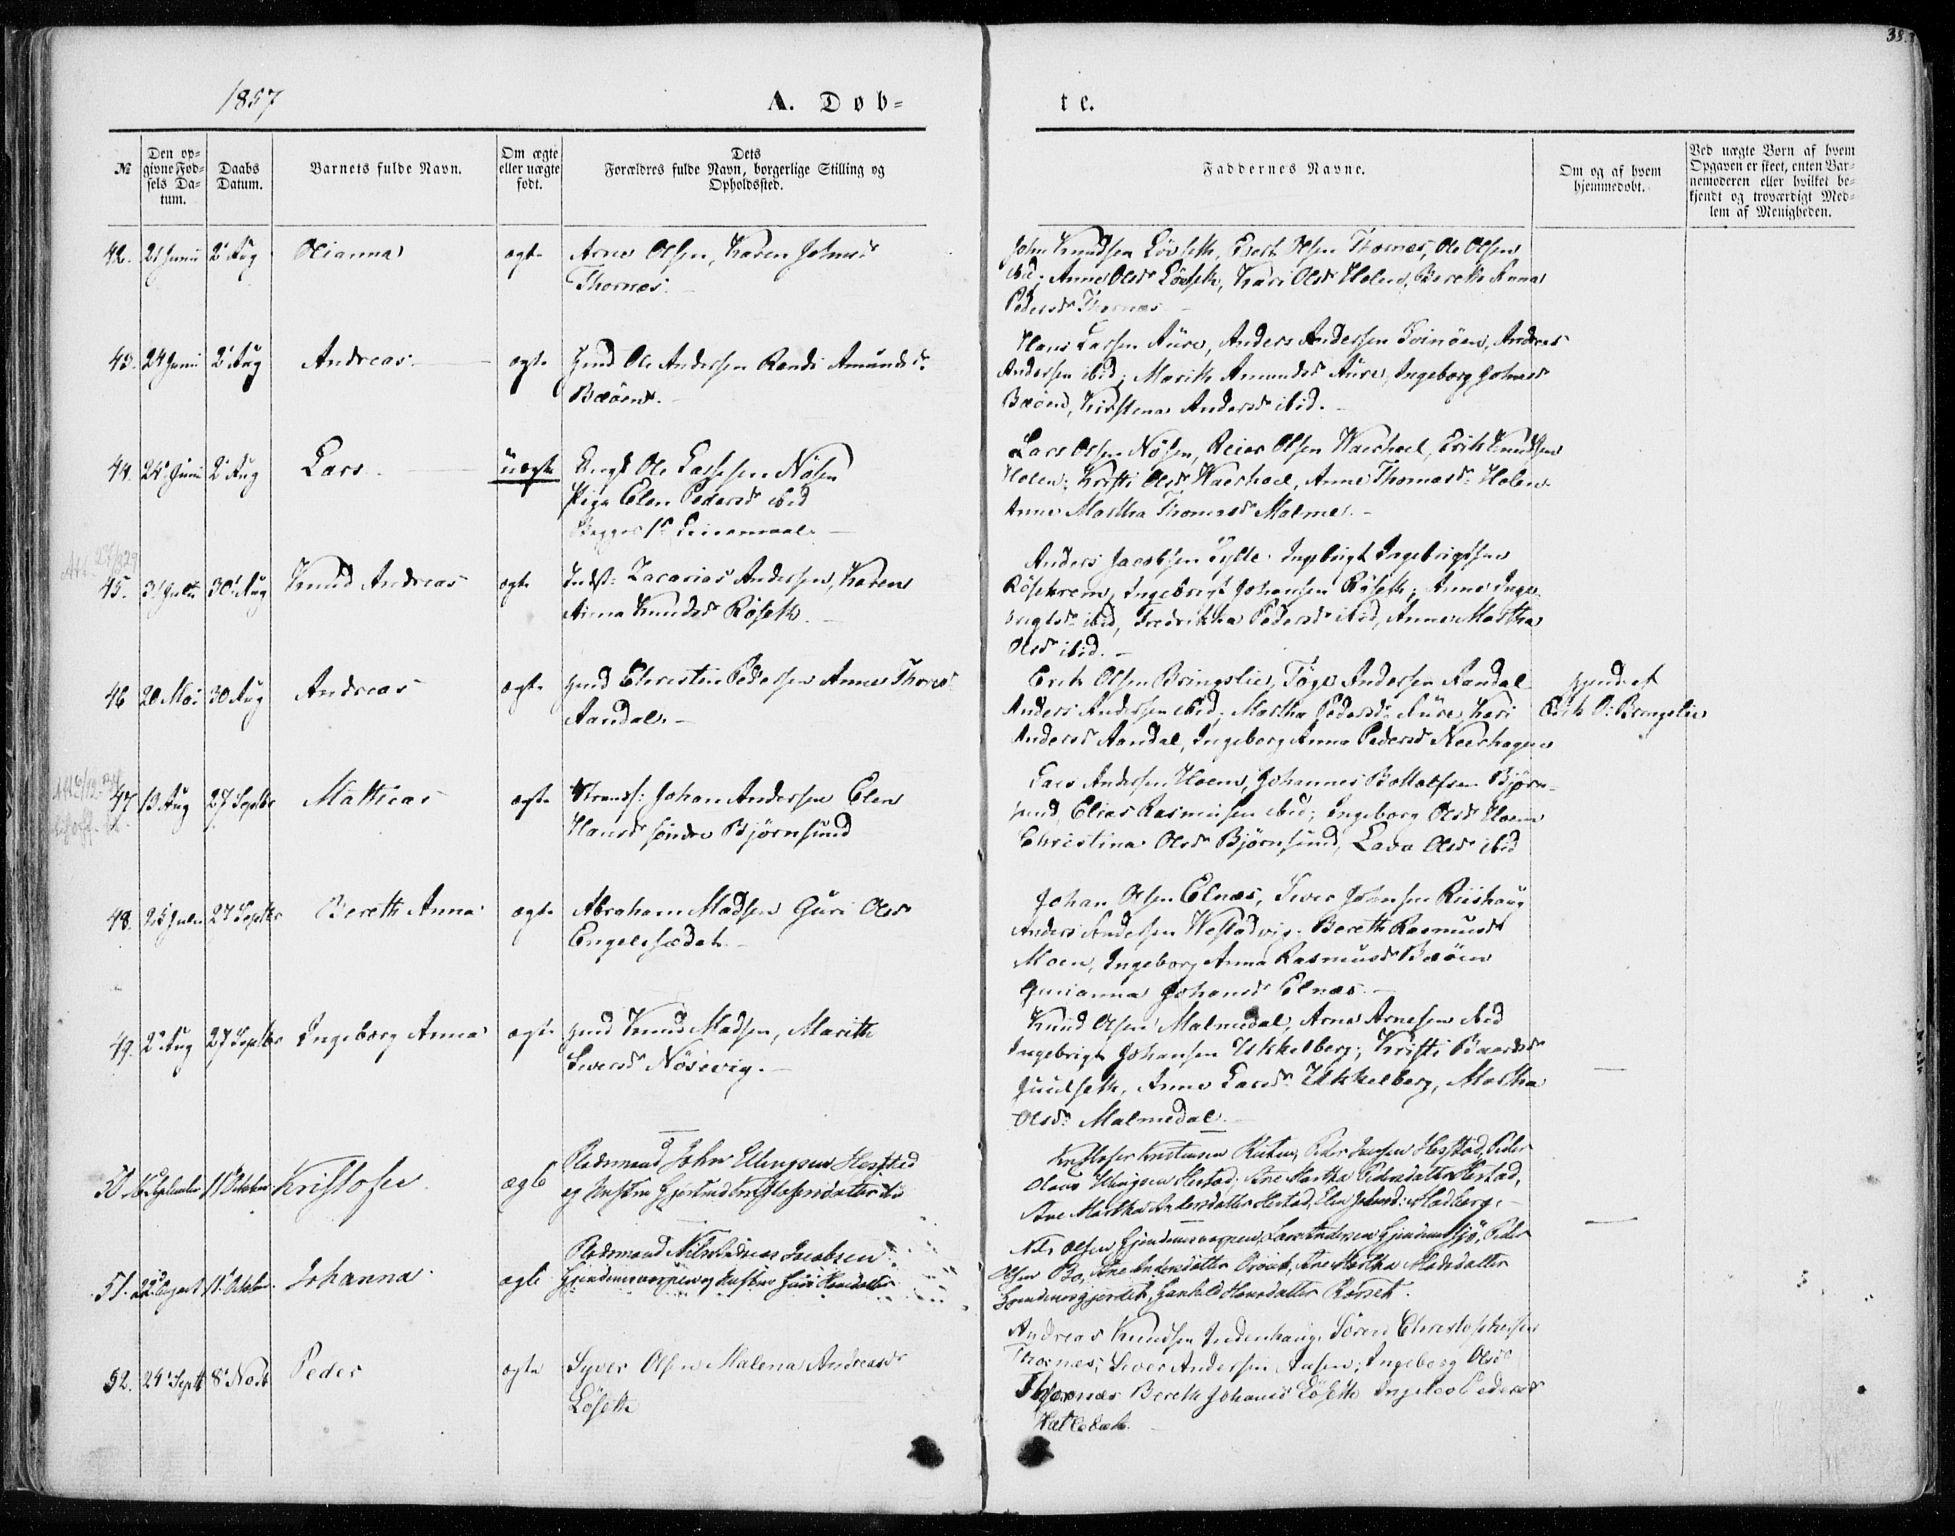 38.
1857
A. Døb-
te.
№
Den op-
givne Fød-
sels Da-
tum.
Daabs
Datum.
Barnets fulde Navn.
Om ægte
eller uægte
født.
Dets
Forældres fulde Navn, borgerlige Stilling og
Opholdssted.
Faddernes Navne.
Om og af hvem
hjemmedøbt.
Ved uægte Børn af hvem
Opgaven er skeet, enten Bar-
nemoderen eller hvilket be-
kjendt og troværdigt Med-
lem af Menigheden.
42. 21 Juni 2 Aug Olianna ægte Arne Olsen, Karen Johnsd
Thornæs.
John Knudsen Løvseth, Olsen Thornæs, Ole Olsen
ibid; Anne Olsd Løvseth, Kari Olsd Holen, Berethe Anna
Pedersd Thornæs
43. 24 Juni 2 Aug Andreas ægte Gmd Ole Andersen Randi Amundsd
Bæøen.
Hans Larsen Aure, Anders Andersen Andreas
Andersen ibid; Marith Amundsd Aure, Ingeborg Johnsd
Bæøen, Kirstena Andersd ibid.
44. 24 Juni 2 Aug Lars uægte Ungk Ole Nøsen
Pige Elen Pedersd ibid
Begges 1e Leiermaal.
Lars Olsen Nøsen, Reier Olsen Waerhoel, Erik Knudsen
Holen; Kristi Olsd Waerhoel, Anne Thomasd Holen
Anne Martha Thomasd Malme.
45. 31 Juli 30 Aug Knud Andreas ægte Indst: Zacarias Andersen, Karen
Anna Knudsd Røseth.
Anders Jacobsen Hylle. Ingebrigt Ingebrigtsen
Ingebrigt Johansen Røseth; Anne Inge-
ibid, Fredrikka Pedersd ibid, Anne Martha
Olsd ibid.
46 20 Mai 30 Aug Andreas ægte Gmd Christen Pedersen Anne
Aandal.
Erik Olsen Bringslie, Andersen Aandal
Anders Andersen ibid; Martha Pedersd Aure, Kari
Andersd Aandal, Ingeborg Anna Pedersd Neerhagen
Erik O: Bringslie
47 13 Aug 27 Septbr Mathias ægte Strands: Johan Andersen Elen
Hansd søndre Bjørnsund
Lars Andersen Hoem, Johannes Bottolfsen Bjørn-
sund, Elias Rasmusen ibid; Ingeborg Olsd Hoem
Christina Olsd Bjørnsund, Lava Olsd ibid
48. 25 Juli 27 Septbr Bereth Anna ægte Abraham Madsen Guri Olsd
Johan Olsen Elnæs, Siver Johnsen Riishaug
Anders Andersen Westadvig. Bereth Rasmusd
Moen, Ingeborg Anna Rasmusd Bæøen
Gurianna Johansd Elnæs.
49. 2 Aug 27 Septbr Ingeborg Anna ægte Gmd Knud Madsen, Marith
Siversd Nøsevig.
Knud Olsen Malmedal, Arne Arnesen ibid
Ingebrigt Johansen Ukkelberg; Kristi
Anne Larsd Ukkelberg, Martha
Olsd Malmedal.
50 16 September 11 October Kristofer ægte Pladsmand John Ellingsen Hestad
og Hustru Gjertrud Kristofersdatter ibid
Kristofer Kristensen Peder Hestad, Peder
Olaus Ellingsen Hestad; Ane Martha Pedersdatter Hestad,
Ane Martha Andersdatter Hestad, Elen
51. 22 August 11 October Johanna ægte Pladsmand Nils Andreas Jacobsen
og Hustru Guri Hansdatter
Nils Olsen Lars Andersen Peder
Olsen Bø, Ane Andersdatter Ane Martha Madsdatter
Gunhild Hansdatter Rørset.
52. 24 Septb 8 Novb Peder ægte Syver Olsen Malena Andreasd
Løseth
Andreas Knudsen Søren Christophersen
Thornæs; Siver Andersen Ingeborg Olsd
Thornæs Bereth Johansd Løseth Pedersd